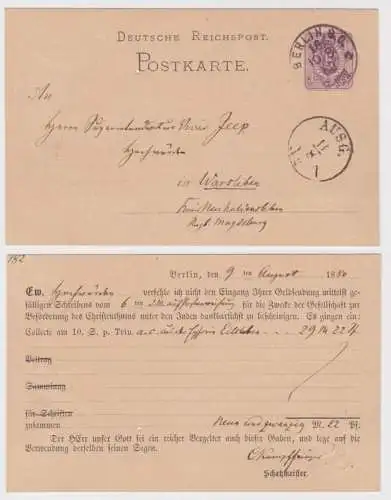 DEUTSCHE REICHSPOST.
POSTKARTE.
BERLIN S.O.
AUSG.
An
Herrn Superintendentur Jeep
Hochwürden
in Warsleben
Kreis Neuhaldensleben
Regb. Magdeburg
182
Berlin, den 9 ten August 1880
Ew. Hochwürden verfehle ich nicht den Eingang Ihrer Geldsendung mittelst ge-
fälligen Schreibens vom 6 ten
für die Zwecke der Gesellschaft zur
Beförderung des Christenthums unter den Juden dankbarlichst zu bescheinigen. Es gingen ein:
Collecte am 10. S. p. Trin. a.c. aus der Ephorie Eilsleben 29 M 22 Pf
Beitrag
Sammlung
für Schriften
zusammen Neun und zwanzig M. 22 Pf.
Der HErr unser Gott sei ein reicher Vergelter auch dieser Gaben, und lege auf die
Verwendung derselben seinen Segen.
Schatzmeister.